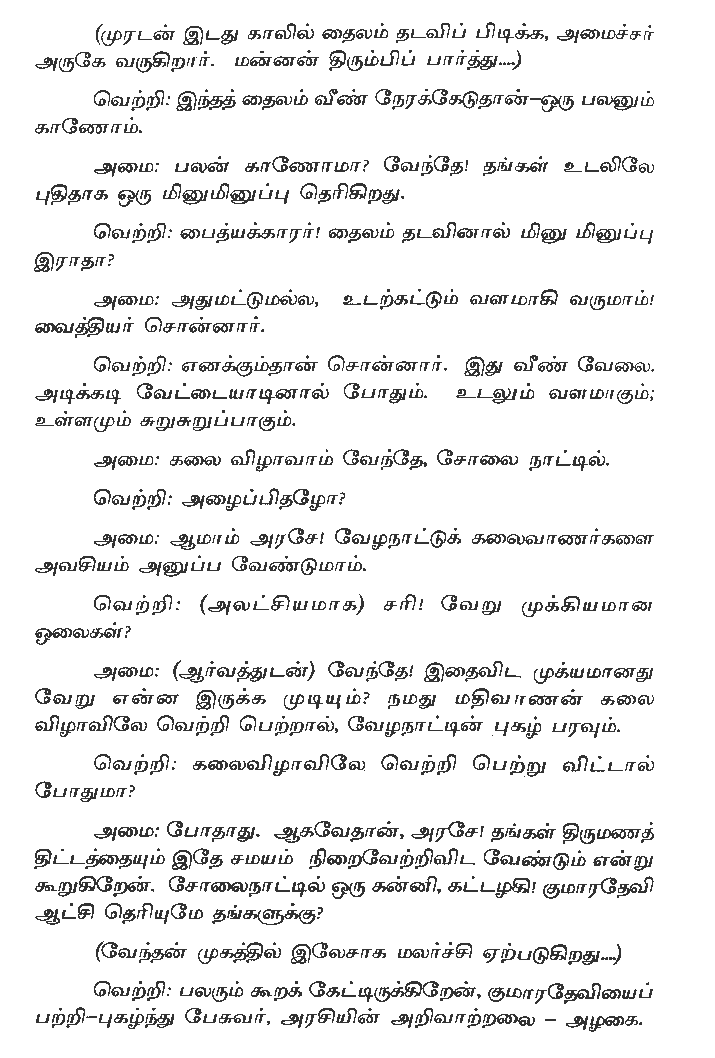 (முரடன் இடது காலில் தைலம் தடவிப் பிடிக்க, அமைச்சர்
அருகே வருகிறார். மன்னன் திரும்பிப் பார்த்து....)
வெற்றி: இந்தத் தைலம் வீண் நேரக்கேடுதான்–ஒரு பலனும்
காணோம்.
அமை: பலன் காணோமா? வேந்தே! தங்கள் உடலிலே
புதிதாக ஒரு மினுமினுப்பு தெரிகிறது.
வெற்றி: பைத்யக்காரர்! தைலம் தடவினால் மினு மினுப்பு
இராதா?
அமை: அதுமட்டுமல்ல, உடற்கட்டும் வளமாகி வருமாம்!
வைத்தியர் சொன்னார்.
வெற்றி: எனக்கும்தான் சொன்னார். இது வீண் வேலை.
அடிக்கடி வேட்டையாடினால் போதும். உடலும் வளமாகும்;
உள்ளமும் சுறுசுறுப்பாகும்.
அமை: கலை விழாவாம் வேந்தே, சோலை நாட்டில்.
வெற்றி: அழைப்பிதழோ?
அமை: ஆமாம் அரசே! வேழநாட்டுக் கலைவாணர்களை
அவசியம் அனுப்ப வேண்டுமாம்.
வெற்றி: (அலட்சியமாக) சரி! வேறு முக்கியமான
ஓலைகள்?
அமை: (ஆர்வத்துடன்) வேந்தே! இதைவிட முக்யமானது
வேறு என்ன இருக்க முடியும்? நமது மதிவாணன் கலை
விழாவிலே வெற்றி பெற்றால், வேழநாட்டின் புகழ் பரவும்.
வெற்றி: கலைவிழாவிலே வெற்றி பெற்று விட்டால்
போதுமா?
அமை: போதாது. ஆகவேதான், அரசே! தங்கள் திருமணத்
திட்டத்தையும் இதே சமயம் நிறைவேற்றிவிட வேண்டும் என்று
கூறுகிறேன். சோலைநாட்டில் ஒரு கன்னி, கட்டழகி! குமாரதேவி
ஆட்சி தெரியுமே தங்களுக்கு?
(வேந்தன் முகத்தில் இலேசாக மலர்ச்சி ஏற்படுகிறது....)
வெற்றி: பலரும் கூறக் கேட்டிருக்கிறேன், குமாரதேவியைப்
பற்றி–புகழ்ந்து பேசுவர், அரசியின் அறிவாற்றலை – அழகை.